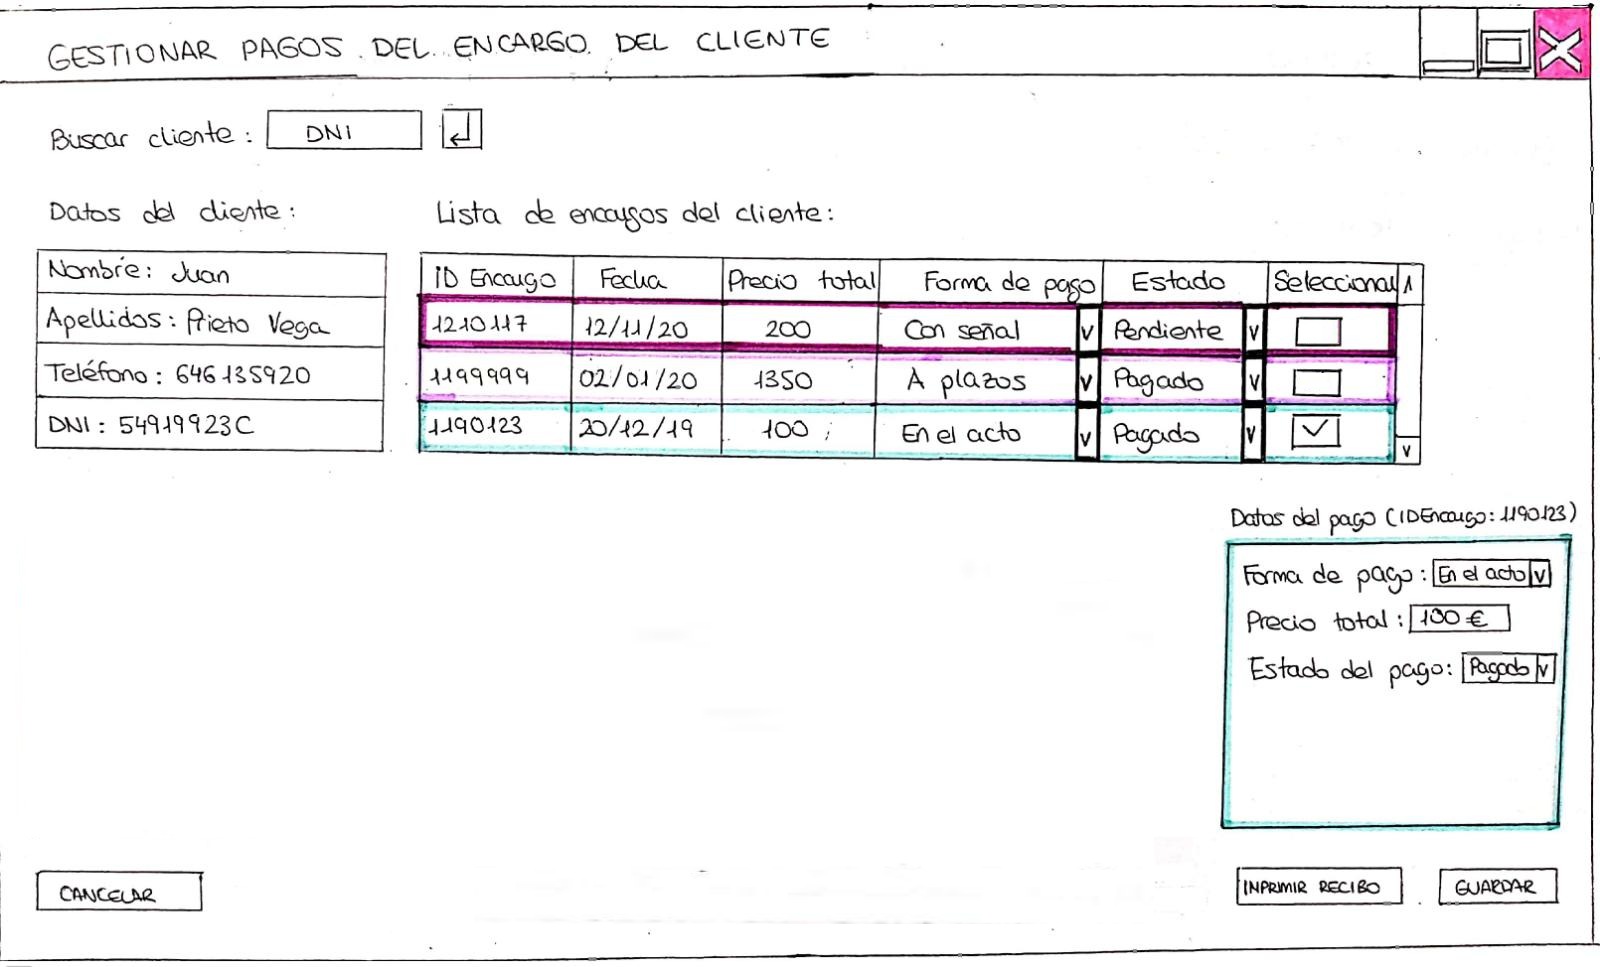 GESTIONAR PAGOS DEL ENCARGO DEL CLIENTE
Buscar cliente: DNI
Datos del cliente:
Lista de encargos del cliente:
Nombre: Juan
Apellidos: Prieto Vega
Teléfono: 646135920
DNI: 54919923C
ID Encargo Fecha Precio total Forma de pago Estado Seleccionar
1210117 12/11/20 200 Con señal Pendiente
1199999 02/01/20 1350 A plazos Pagado
1190123 20/12/19 100 En el acto Pagado
Datos del pago (IDEncargo: 1190123)
Forma de pago: En el acto
Precio total: 100 €
Estado del pago: Pagado
CANCELAR
INPRIMIR RECIBO
GUARDAR